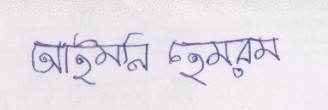 আইমনি হেমব্রম